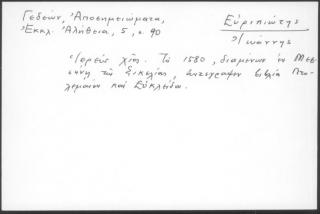 Γεδεών, Ἀποσημειώματα,
Ἐκκλ. Ἀλήθεια, 5, σ. 90
Εὐριπιώτης
Ἰωάννης
Ἱερεὺς Χῖος. Τῷ 1580, διαμένων ἐν Μεσ-
σήνῃ τῆς Σικελίας, ἀντέγραφεν βιβλία Πτο-
λεμαίου καὶ Εὐκλείδου.